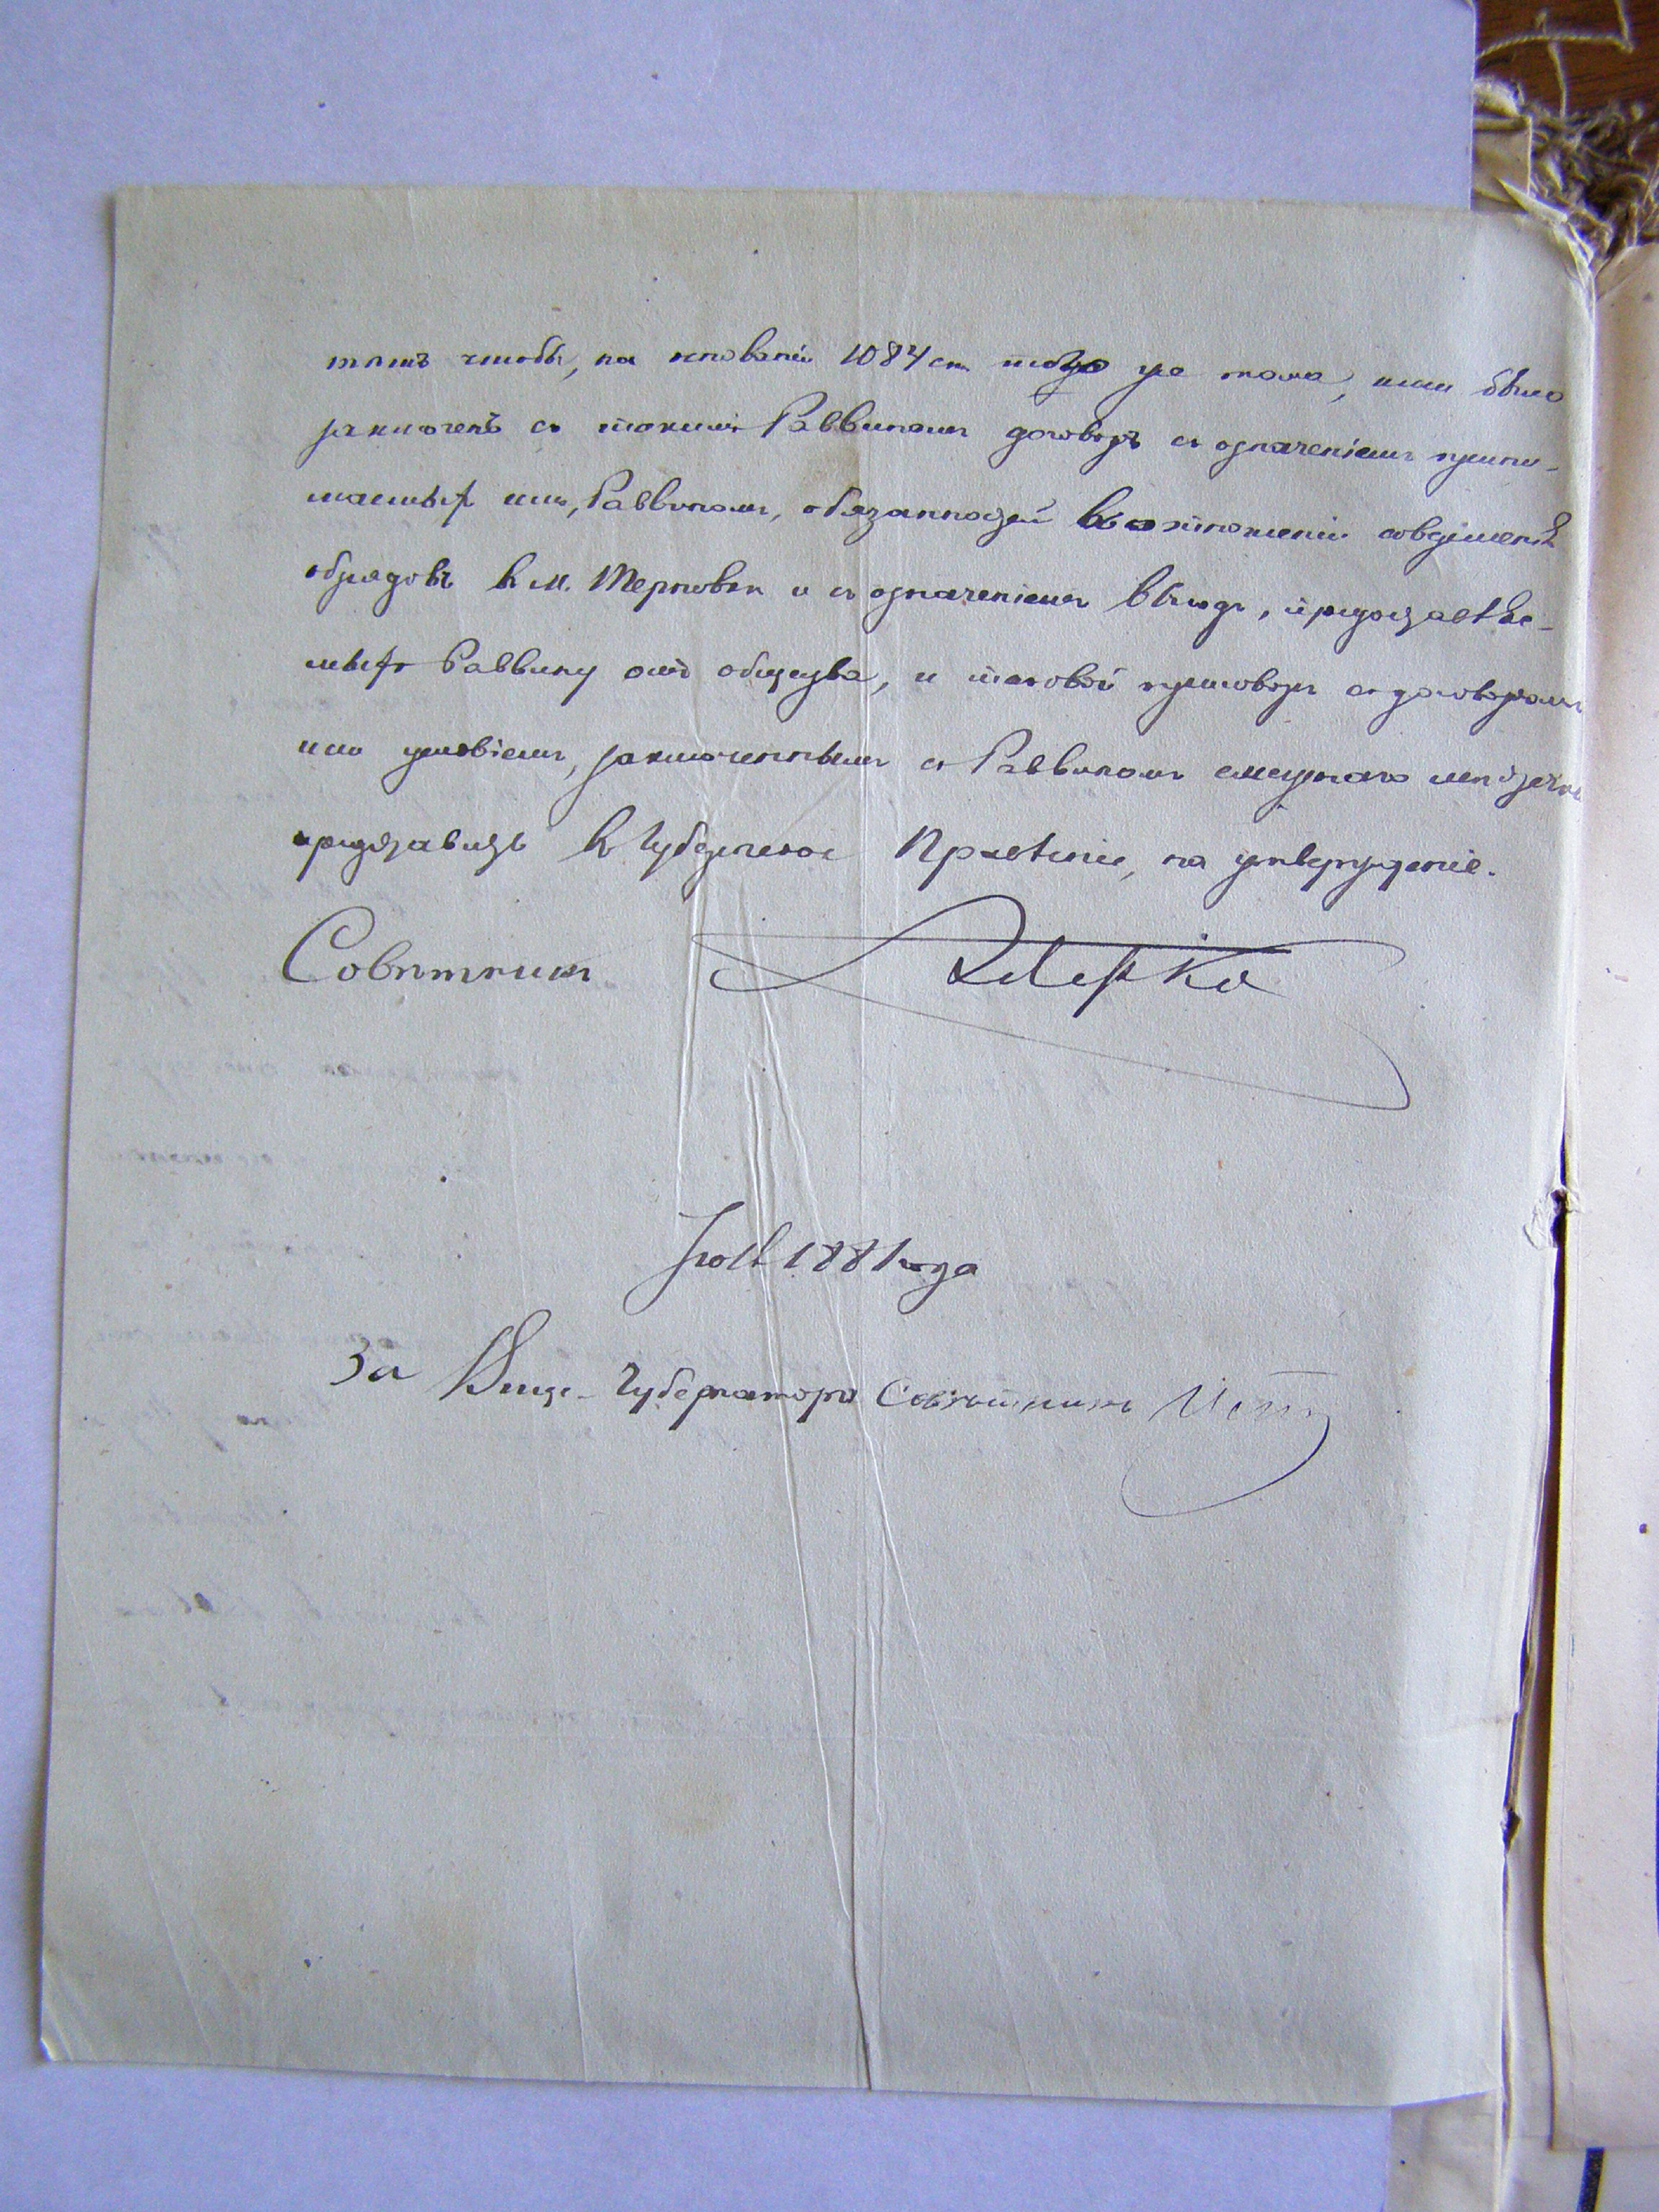 тѣмъ чтобы, на основаніи 1084 ст. того же тома, ими было
заключенъ съ такимъ Раввиномъ договоръ съ означеніемъ прини-
маемыхъ имъ, Раввиномъ, обязанностей въ отношеніи совершенія
обрядовъ въ м. Терновкѣ и съ означеніемъ выгодъ, предоставляе-
мыхъ Раввину отъ общества, и таковой приговоръ съ договоромъ
или условіемъ, заключеннымъ съ Раввиномъ смежнаго мѣстечка
представить въ Губернское Правленіе, на утвержденіе.
Совѣтникъ
1881 года
За Вице-Губернатора Совѣтникъ